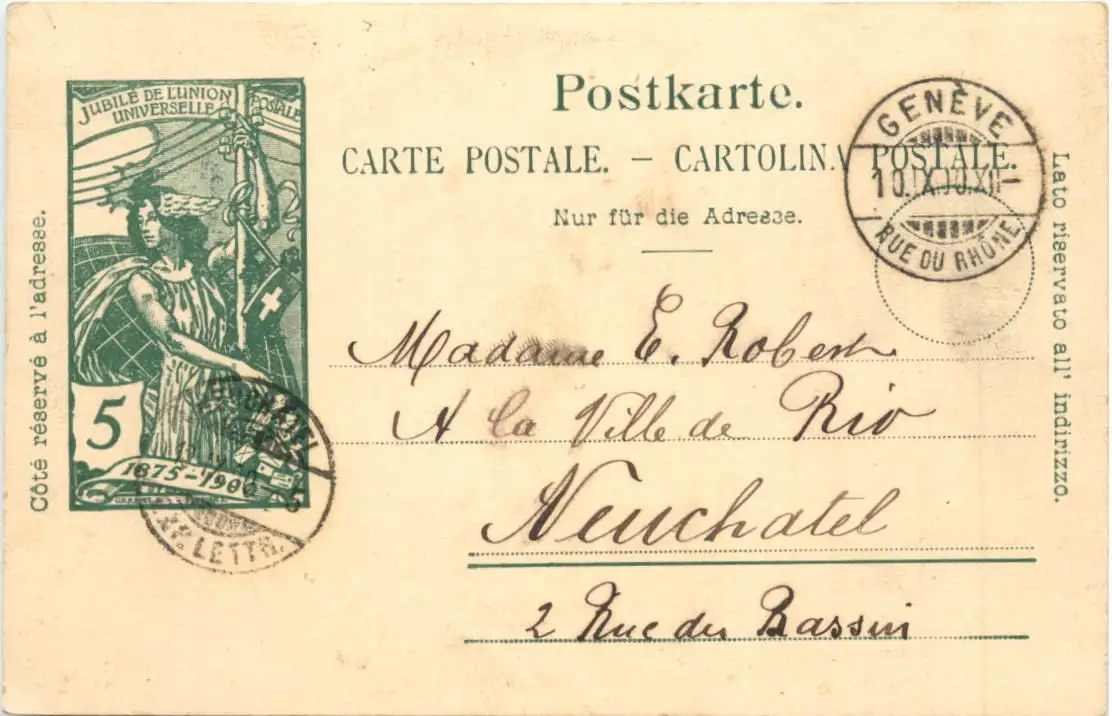 Postkarte.
CARTE POSTALE. – CARTOLINA POSTALE.
Nur für die Adresse.
Côté réservé à l'adresse.
JUBILÉ DE L'UNION
POSTALE
UNIVERSELLE
5
1875–1900
GENÈVE
10.IX.00.XII–
RUE DU RHÔNE
Lato riservato all' indirizzo.
Madame E. Robert
A la Ville de Rio
Neuchatel
2 Rue du Bassin
NEUCHATEL
5
XP. LETTR.